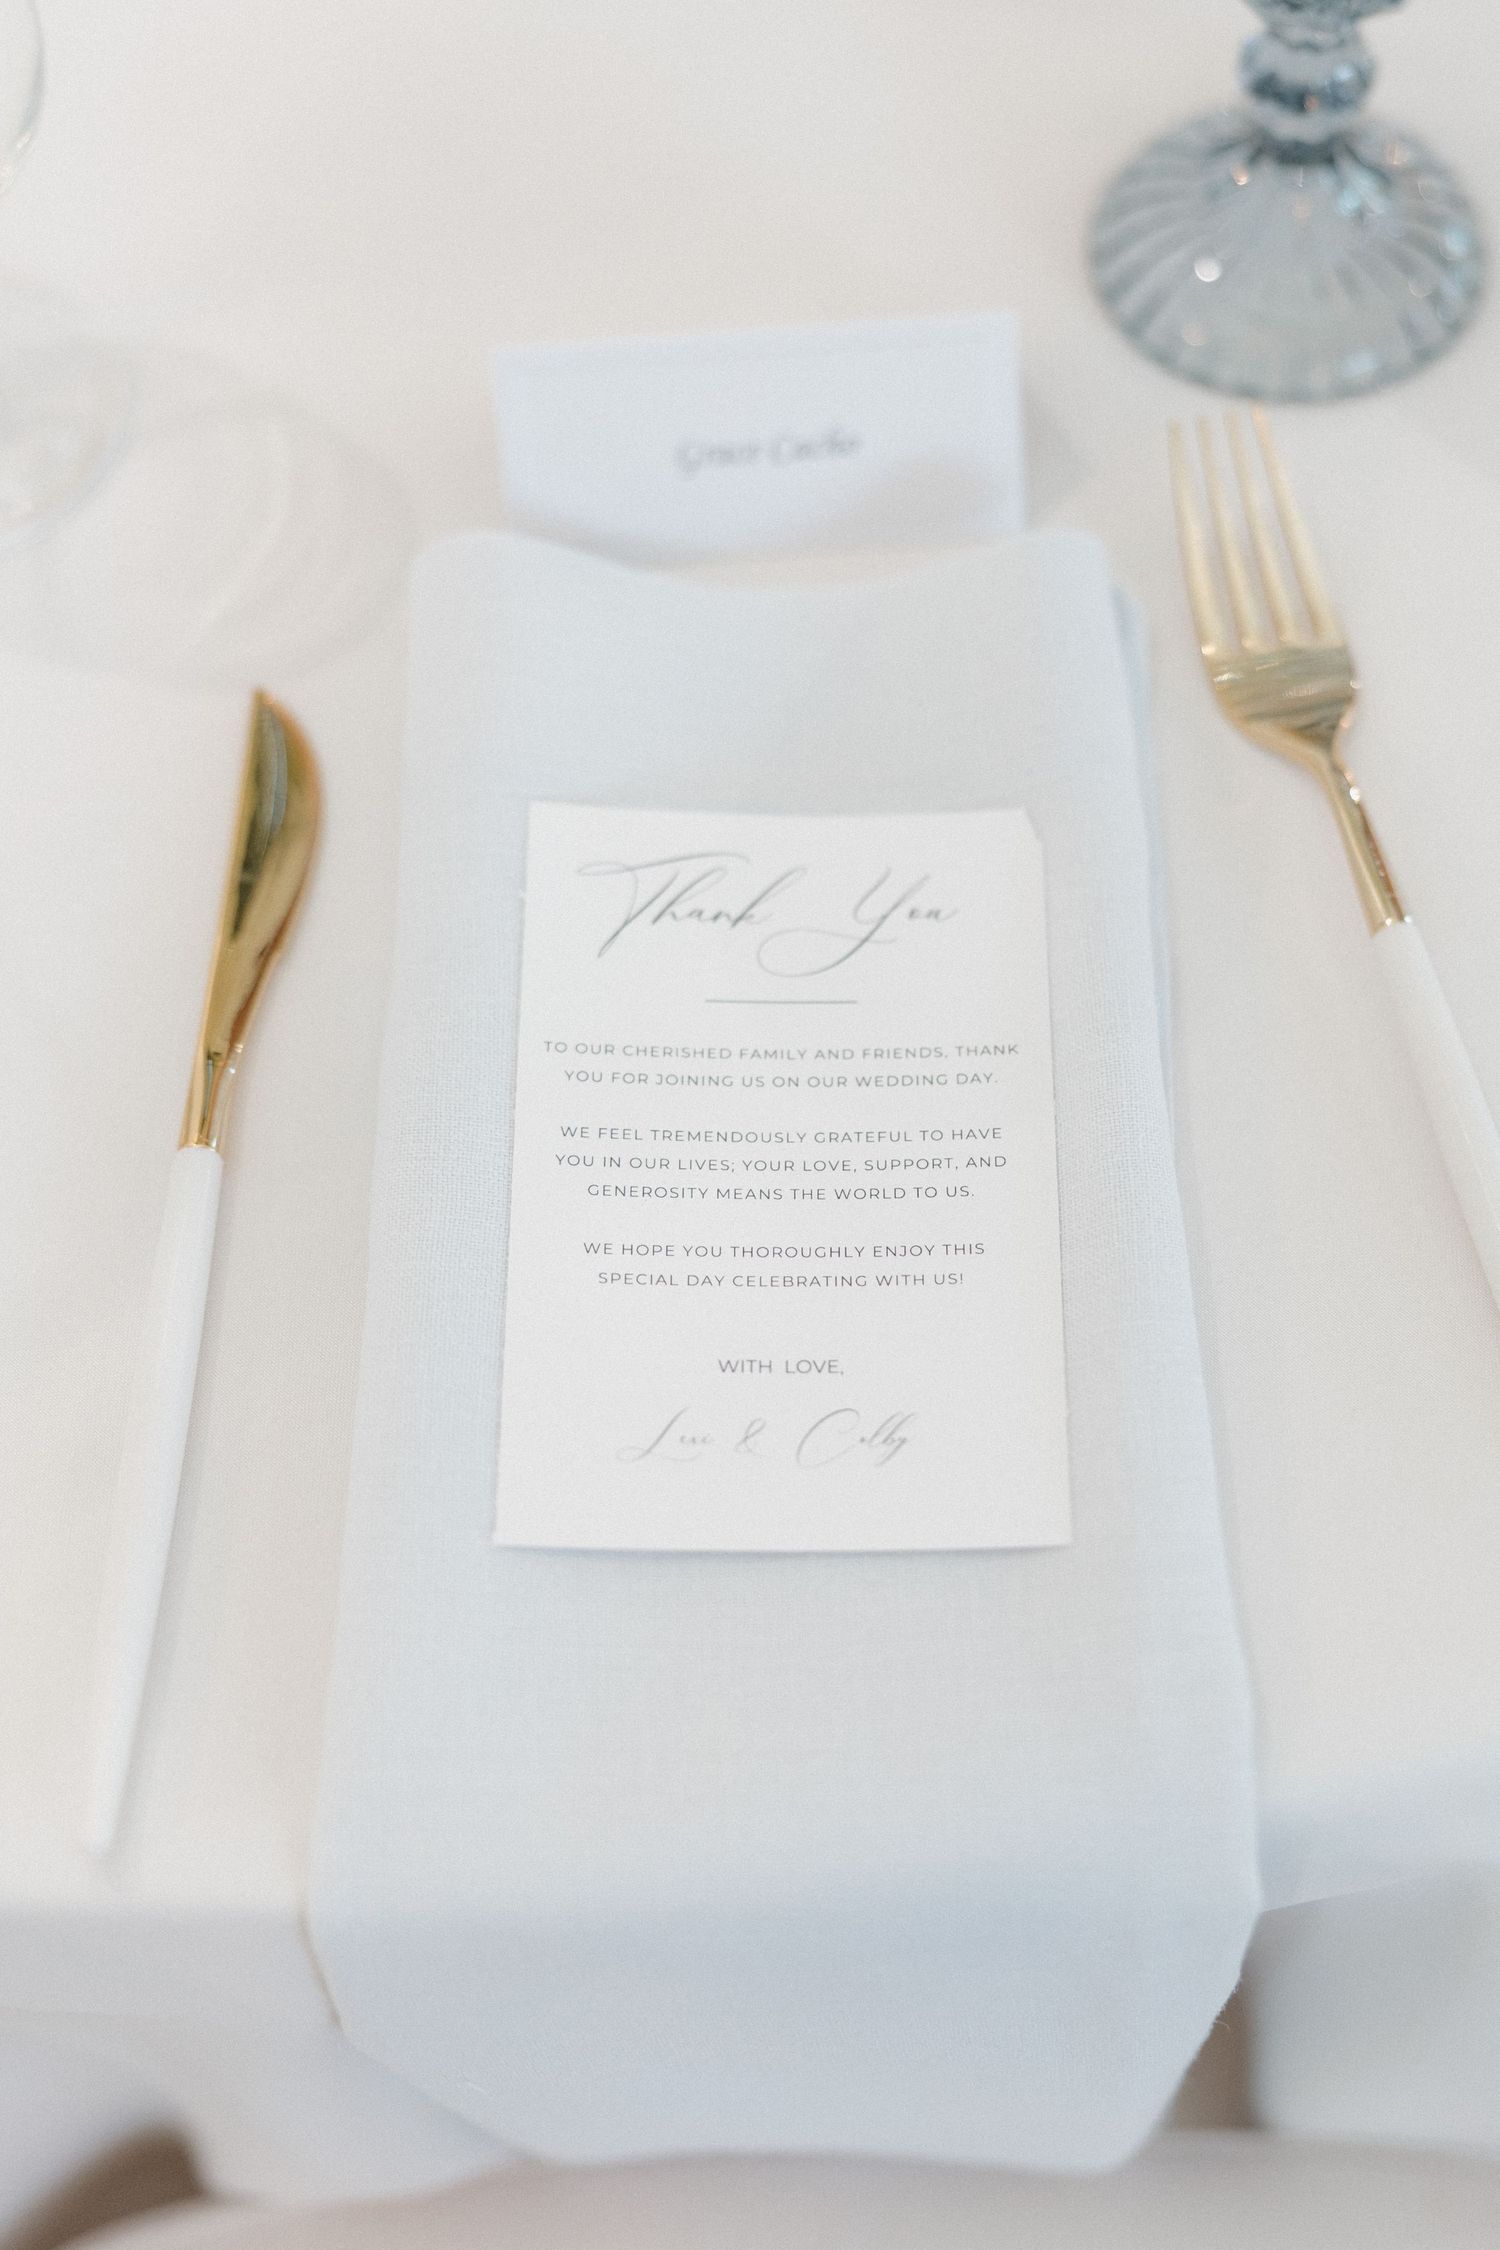 Thank You
TO OUR CHERISHED FAMILY AND FRIENDS, THANK
YOU FOR JOINING US ON OUR WEDDING DAY.
WE FEEL TREMENDOUSLY GRATEFUL TO HAVE
YOU IN OUR LIVES; YOUR LOVE, SUPPORT, AND
GENEROSITY MEANS THE WORLD TO US.
WE HOPE YOU THOROUGHLY ENJOY THIS
SPECIAL DAY CELEBRATING WITH US!
WITH LOVE,
Lexi & Colby